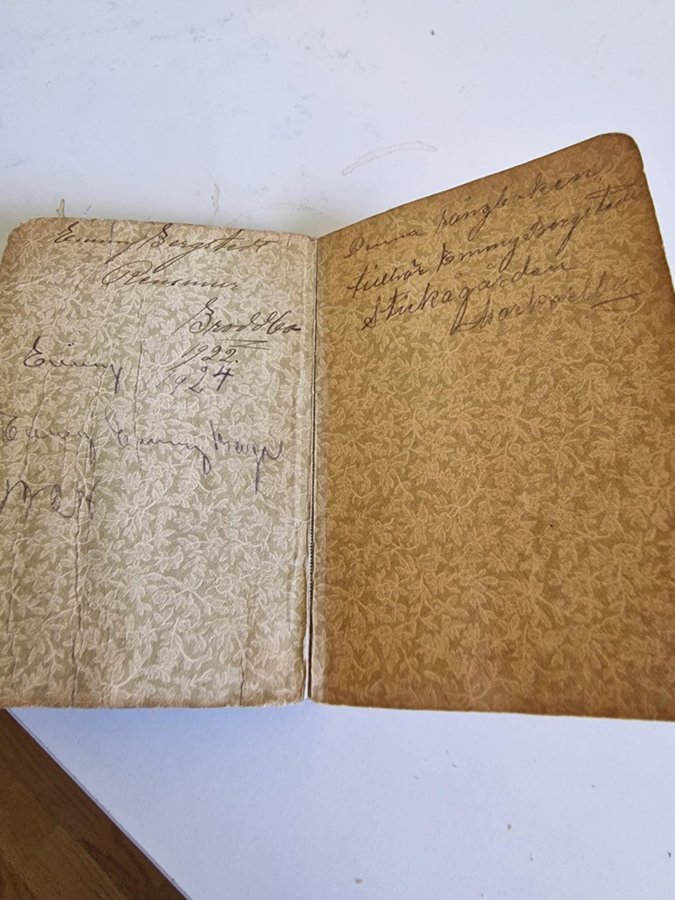 Emmy Bergstedt
Broddbo
1922.
1924
Emmy
Emmy Emmy Berg
Denna sångboken
tillhör Emmy Bergstedt
Stickagården